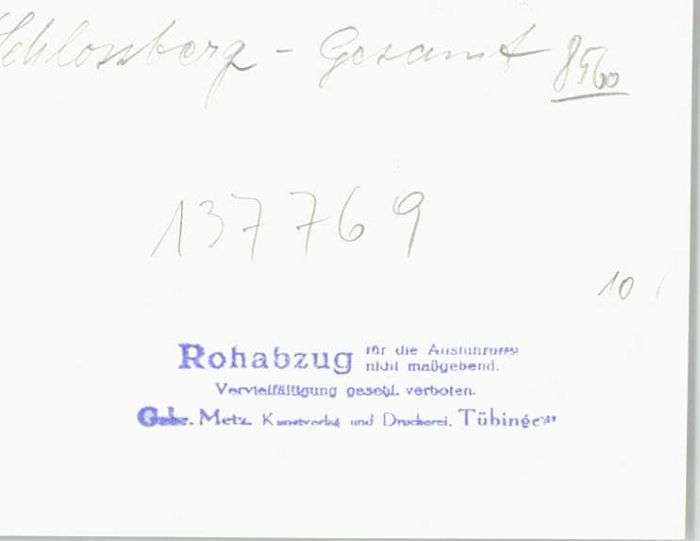 Schlossberg - Gesamt 8560
137769
10
Rohabzug für die Ausführung
nicht maßgebend.
Vervielfältigung gesetzl. verboten.
Gebr. Metz, Kunstverlag und Druckerei, Tübingen